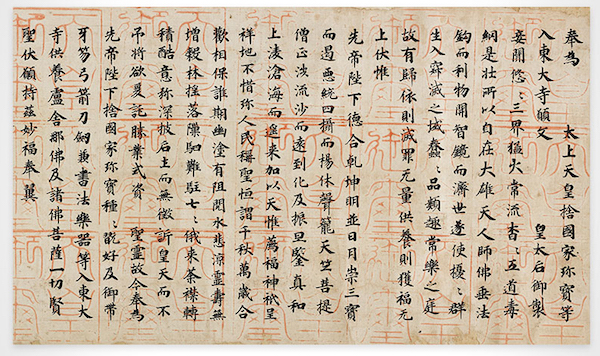 奉為　太上天皇捨國家珎寶等
入東大寺願文　皇太后御製
妾聞悠〻三界猛火常流杳〻五道毒
網是壯所以自在大雄天人師佛垂法
鈎而利物開智鏡而濟世遂使擾〻群
生入寂滅之域蠢〻品類趣常樂之庭
故有歸依則滅罪无量供養則獲福无
上伏惟
先帝陛下德合乾坤明並日月崇三寶
而遏惡統四攝而揚休聲籠天竺菩提
僧正渉流沙而遠到化及振旦鑒真和
上凌滄海而遙來加以天惟薦福神祇呈
祥地不惜珎人民稱聖恒謂千秋萬歲合
歡相保誰期幽塗有阻閱水悲凉靈壽無
增穀林搖落隙駟難駐七〻俄來荼襟轉
積酷意弥深披后土而無徵訴皇天而不
弔將欲爰託勝業式資　聖靈故今奉為
先帝陛下捨國家珎寶種〻翫好及御帶
牙笏弓箭刀劒兼書法樂器等入東大
寺供養盧舍那佛及諸佛菩薩一切賢
聖伏願持茲妙福奉翼